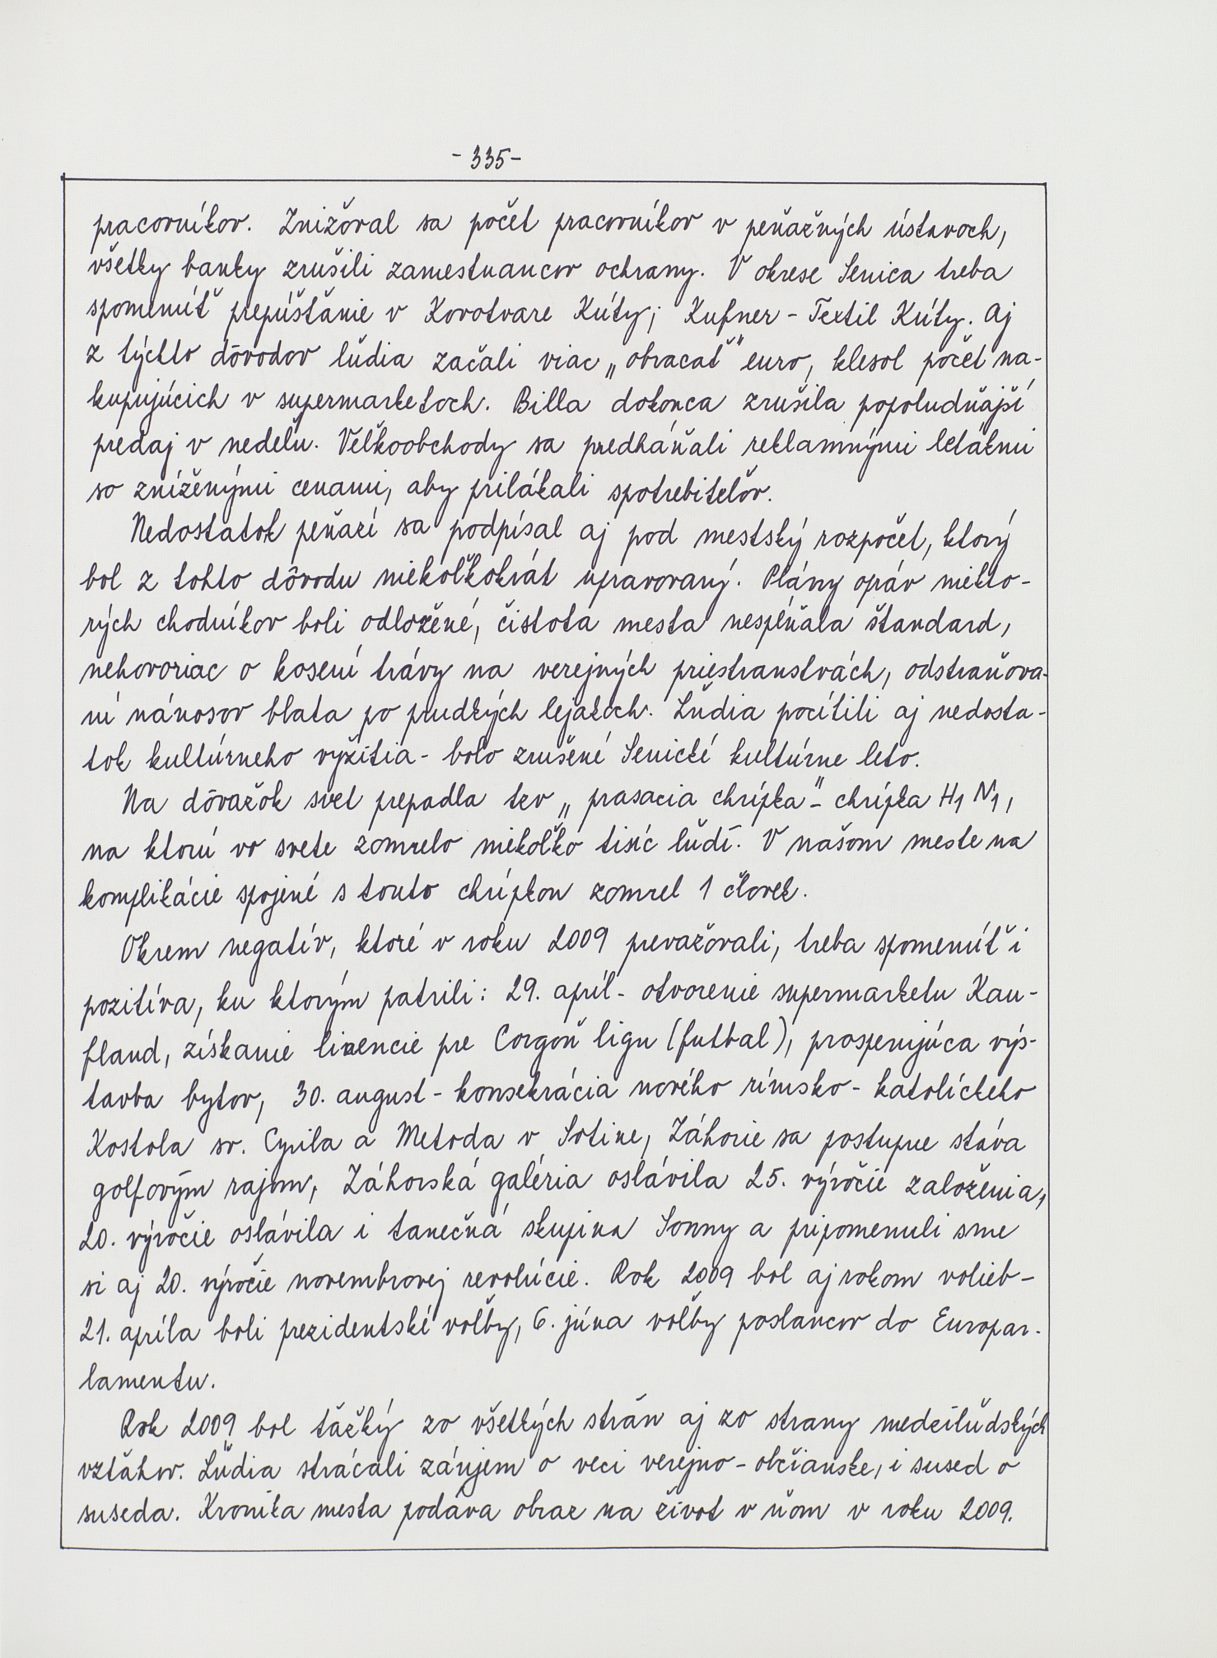 - 335 -
pracovníkov. Znižoval sa počet pracovníkov v peňažných ústavoch,
všetky banky zrušili zamestnancov ochrany. V okrese Senica treba
spomenúť prepúšťanie v Kovotvare Kúty; Kufner - Textil Kúty. Aj
z týchto dôvodov ľudia začali viac „obracať" euro, klesol počet na-
kupujúcich v supermarketoch. Billa dokonca zrušila popoludňajší
predaj v nedeľu. Veľkoobchody sa predháňali reklamnými letákmi
so zníženými cenami, aby prilákali spotrebiteľov.
Nedostatok peňazí sa podpísal aj pod mestský rozpočet, ktorý
bol z tohto dôvodu niekoľkokrát upravovaný. Plány opráv niekto-
rých chodníkov boli odložené, čistota mesta nespĺňala štandard,
nehovoriac o kosení trávy na verejných priestranstvách, odstraňova-
ní nánosov blata po prudkých lejakoch. Ľudia pocítili aj nedosta-
tok kultúrneho vyžitia - bolo zrušené Senické kultúrne leto.
Na dôvažok svet prepadla tzv „prasacia chrípka" - chrípka H1 N1,
na ktorú vo svete zomrelo niekoľko tisíc ľudí. V našom meste na
komplikácie spojené s touto chrípkou zomrel 1 človek.
Okrem negatív, ktoré v roku 2009 prevažovali, treba spomenúť i
pozitíva, ku ktorým patrili: 29. apríl - otvorenie supermarketu Kau-
fland, získanie licencie pre Corgoň ligu (futbal), prosperujúca výs-
tavba bytov, 30. august - konsekrácia nového rímsko - katolíckeho
Kostola sv. Cyrila a Metoda v Sotine, Záhorie sa postupne stáva
golfovým rajom, Záhorská galéria oslávila 25. výročie založenia,
20. výročie oslávila i tanečná skupina Sonny a pripomenuli sme
si aj 20. výročie novembrovej revolúcie. Rok 2009 bol aj rokom volieb -
21. apríla boli prezidentské voľby, 6. júna voľby poslancov do Europar-
lamentu.
Rok 2009 bol ťažký zo všetkých strán aj zo strany medziľudských
vzťahov. Ľudia strácali záujem o veci verejno - občianske, i sused o
suseda. Kronika mesta podáva obraz na život v ňom v roku 2009.